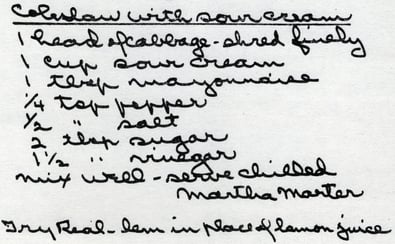 Coleslaw with sour cream
1 head of cabbage - shred finely
1 cup sour cream
1 tbsp mayonnaise
1/4 tsp pepper
1/2 " salt
2 tbsp sugar
1 1/2 " vinegar
mix well - serve chilled
Martha Marter
Try Real-lem in place of lemon juice